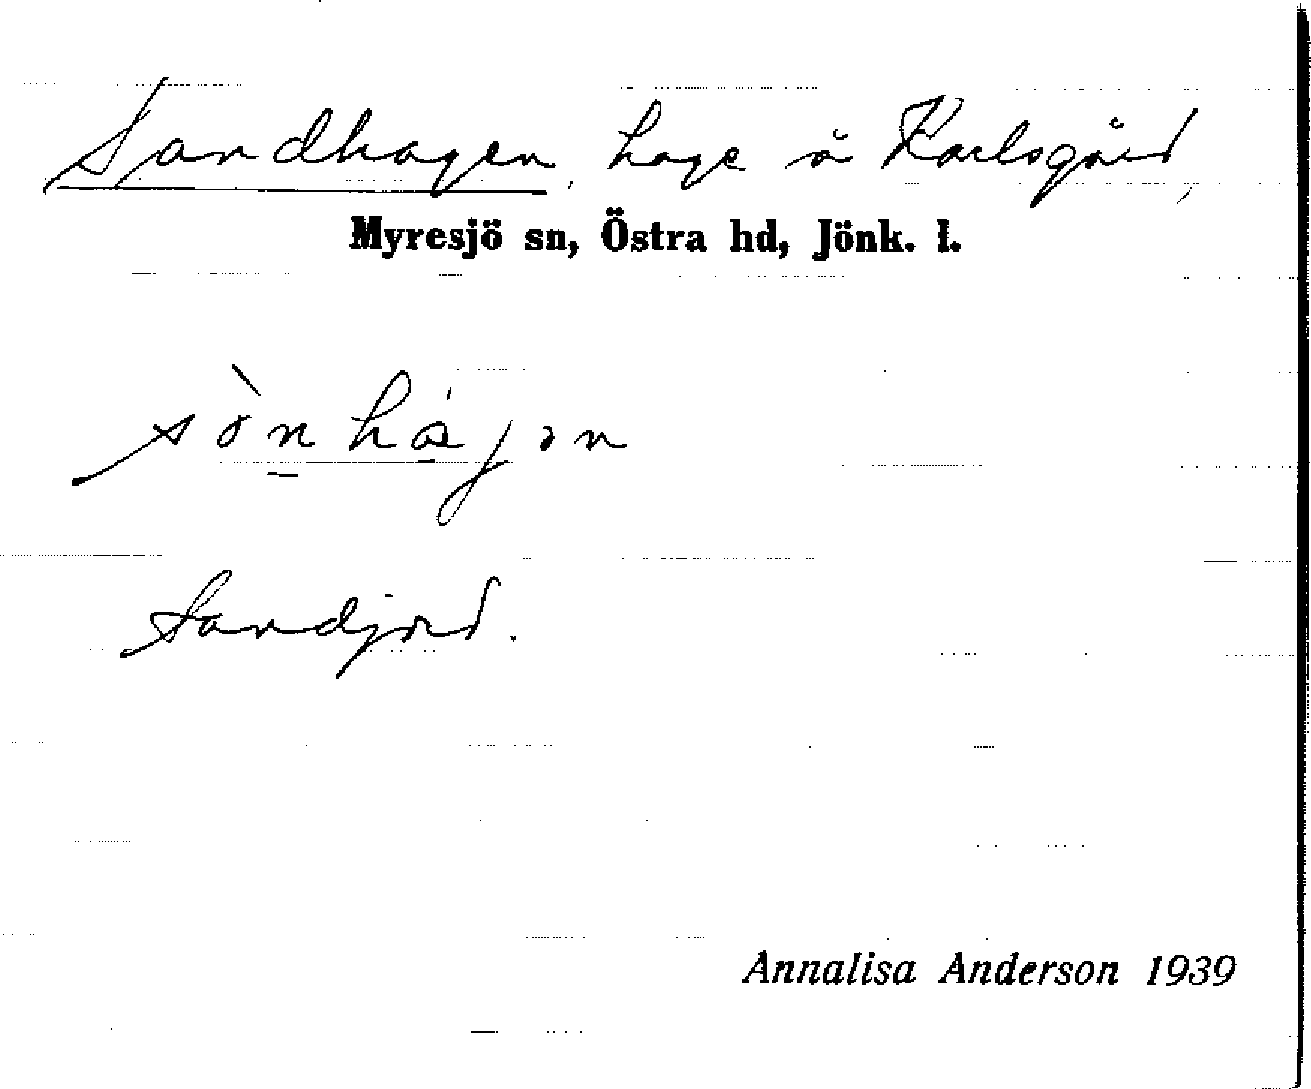 Sandhagen, hage å Karlsgård,
Myresjö sn, Östra hd, Jönk. l.
sònhájən
Sandjord.
Annalisa Anderson 1939